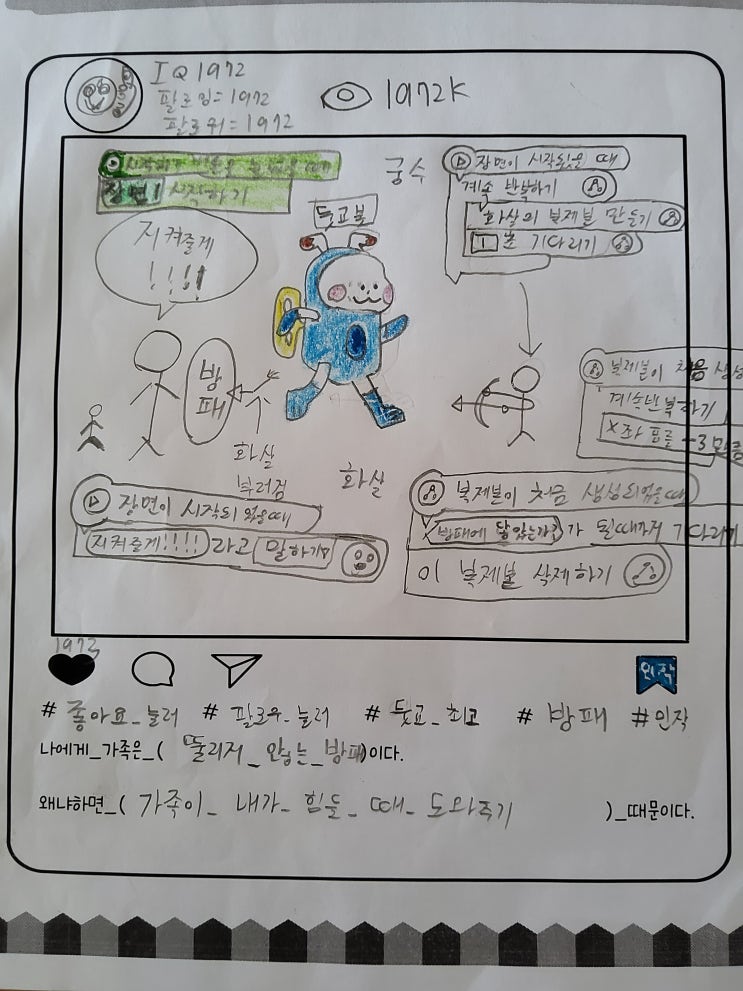 IQ1972
팔로잉=1972
팔로워=1972
1972K
시작하기 버튼을 눌렀을 때
장면 1 시작하기
궁수
장면이 시작되었을 때
계속 반복하기
화살의 복제본 만들기
1 초 기다리기
듯고봇
지켜줄게
!!!!
방패
화살
부러짐
화살
복제본이 처음 생성
계속반복하기
X좌표를 -3 만큼
장면이 시작되었을때
지켜줄게!!!! 라고 말하기
복제본이 처음 생성되었을때
방패에 닿았는가? 가 될때까지 기다리기
이 복제본 삭제하기
1973
인작
#좋아요_눌러 #팔로우_눌러 #듯고_최고 #방패 #인작
나에게_가족은_( 뚫리지_않는_방패)이다.
왜냐하면_( 가족이_내가_힘들_때_도와주기 )_때문이다.